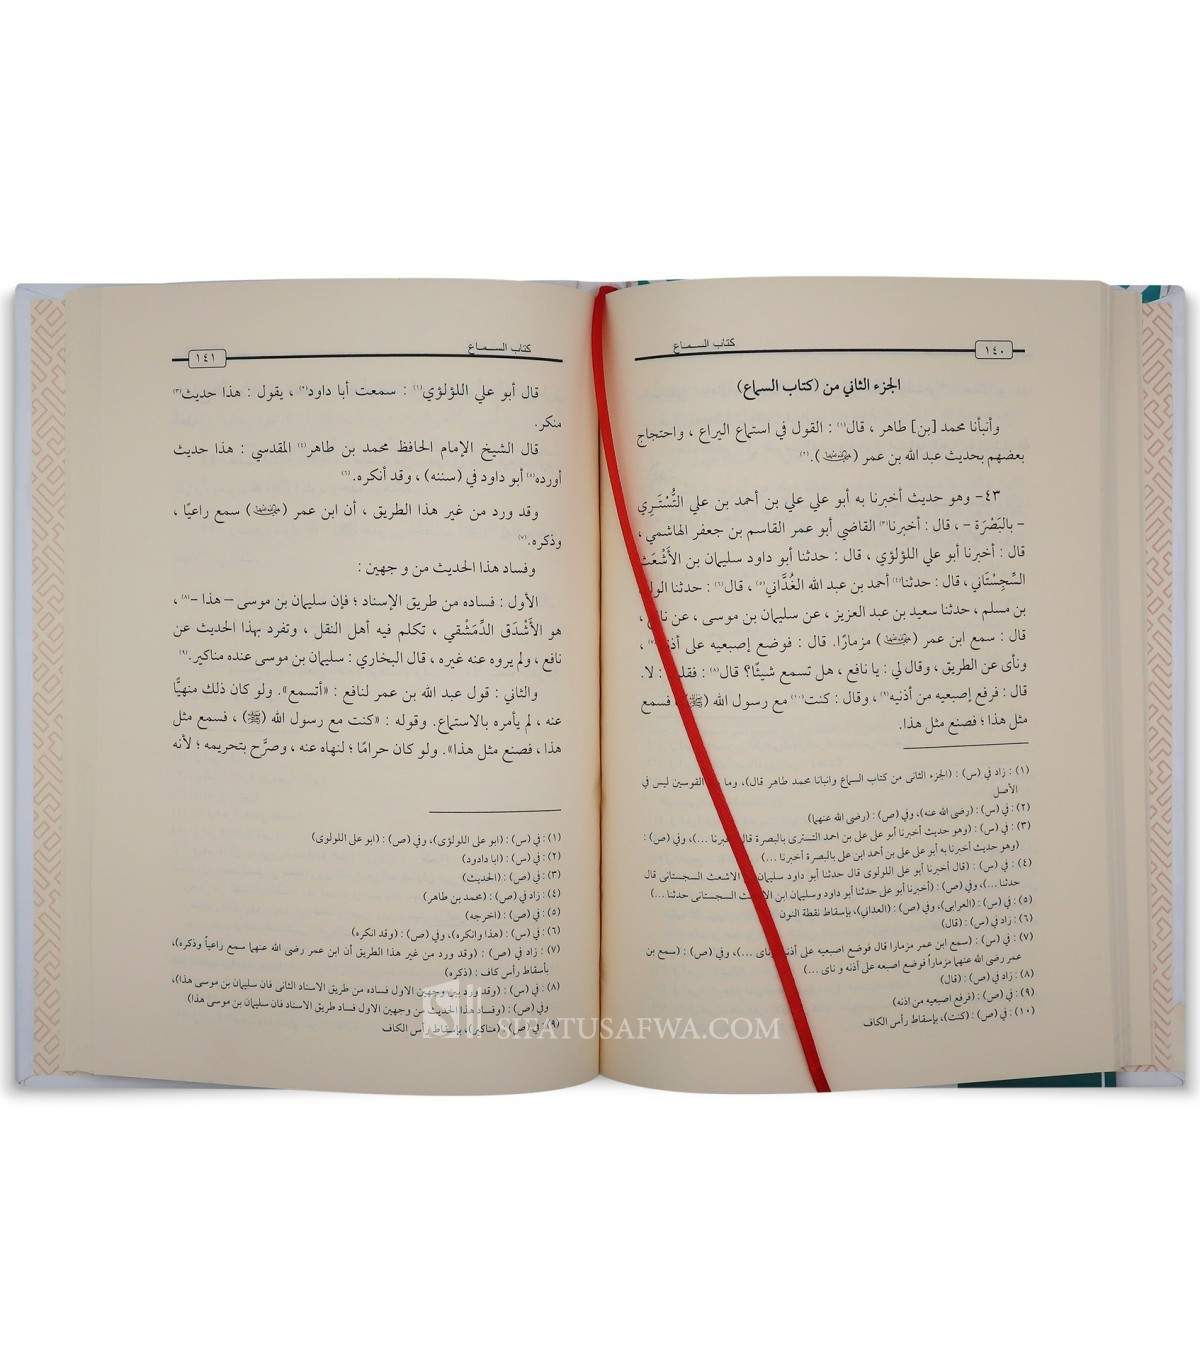 كتاب السماع
١٤٠
الجزء الثاني من (كتاب السماع)
وأنبأنا محمد [بن] طاهر ، قال(١) : القول في استماع اليراع ، واحتجاج
بعضهم بحديث عبد الله بن عمر (رضي الله عنهما).(٢)
٤٣- وهو حديث أخبرنا به أبو علي علي بن أحمد بن علي التُّسْتَرِي
- بالبَصْرَة - ، قال : أخبرنا(٣) القاضي أبو عمر القاسم بن جعفر الهاشمي ،
قال : أخبرنا أبو علي اللؤلؤي ، قال : حدثنا أبو داود سليمان بن الأَشْعَث
السِّجِسْتَاني ، قال : حدثنا(٤) أحمد بن عبد الله الغُدَّاني(٥) ، قال(٦) : حدثنا الوليد
بن مسلم ، حدثنا سعيد بن عبد العزيز ، عن سليمان بن موسى ، عن نافع ،
قال : سمع ابن عمر (رضي الله عنهما) مزمارًا. قال : فوضع إصبعيه على أذنيه(٧) ،
ونأى عن الطريق ، وقال لي : يا نافع ، هل تسمع شيئًا؟ قال(٨) : فقلت : لا.
قال : فرفع إصبعيه من أذنيه(٩) ، وقال : كنت(١٠) مع رسول الله (ﷺ) ، فسمع
مثل هذا ؛ فصنع مثل هذا.
(١) : زاد في (س) : (الجزء الثانى من كتاب السماع وانبانا محمد طاهر قال)، وما القوسين ليس في
الأصل
(٢) : في (س) : (رضى الله عنه)، وفي (ص) : (رضى الله عنهما)
(٣) : في (س) : (وهو حديث أخبرنا أبو على على بن احمد التسترى بالبصرة قال أخبرنا ...)، وفي (ص) :
(وهو حديث أخبرنا به أبو على على بن أحمد ابن على بالبصرة أخبرنا ...)
(٤) : في (س) : (قال أخبرنا أبو على اللولوى قال حدثنا أبو داود سليمان الاشعث السجستانى قال
حدثنا ...)، وفي (ص) : (أخبرنا أبو على حدثنا أبو داود وسليمان ابن الاشعث السجستانى حدثنا ...)
(٥) : في (س) : (العرابى)، وفي (ص) : (العدانى)، بإسقاط نقطة النون
(٦) : زاد في (س) : (قال)
(٧) : في (س) : (سمع ابن عمر مزمارا قال فوضع اصبعيه على أذنيه وناى ...)، وفي (ص) : (سمع بن
عمر رضى الله عنهما مزماراً فوضع اصبعه على أذنه و ناى ...)
(٨) : زاد في (ص) : (قال)
(٩) : في (ص) : (فرفع اصبعيه من اذنه)
(١٠) : في (ص) : (كنت)، بإسقاط رأس الكاف
كتاب السماع
١٤١
قال أبو علي اللؤلؤي(١) : سمعت أبا داود(٢) ، يقول : هذا حديث(٣)
منكر.
قال الشيخ الإمام الحافظ محمد بن طاهر(٤) المقدسي : هذا حديث
أورده(٥) أبو داود في (سننه) ، وقد أنكره.(٦)
وقد ورد من غير هذا الطريق ، أن ابن عمر (رضي الله عنهما) سمع راعيًا ،
وذكره.(٧)
وفساد هذا الحديث من وجهين :
الأول : فساده من طريق الإسناد ؛ فإن سليمان بن موسى – هذا –(٨) ،
هو الأَشْدَق الدِّمَشْقي ، تكلم فيه أهل النقل ، وتفرد بهذا الحديث عن
نافع ، ولم يروه عنه غيره ، قال البخاري : سليمان بن موسى عنده مناكير.(٩)
والثاني : قول عبد الله بن عمر لنافع : «أتسمع». ولو كان ذلك منهيًّا
عنه ، لم يأمره بالاستماع. وقوله : «كنت مع رسول الله (ﷺ) ، فسمع مثل
هذا ، فصنع مثل هذا». ولو كان حرامًا ؛ لنهاه عنه ، وصرَّح بتحريمه ؛ لأنه
(١) : في (س) : (ابو على اللولؤى)، وفي (ص) : (ابو على اللولوى)
(٢) : في (س) : (ابا دادود)
(٣) : في (ص) : (الحديث)
(٤) : زاد في (ص) : (محمد بن طاهر)
(٥) : في (ص) : (اخرجه)
(٦) : في (س) : (هذا وانكره)، وفي (ص) : (وقد انكره)
(٧) : زاد في (ص) : (وقد ورد من غير هذا الطريق أن ابن عمر رضى الله عنهما سمع راعياً وذكره)،
بأسقاط رأس كاف : (ذكره)
(٨) : في (س) : (وقد ورد بين وجهين الاول فساده من طريق الاسناد الثانى فان سليمان بن موسى هذا)،
وفي (ص) : (وفساد هذا الحديث من وجهين الاول فساد طريق الاسناد فان سليمان بن موسى هذا)
(٩) : في (ص) : (مناكير)، بإسقاط رأس الكاف
SIFATUSAFWA.COM